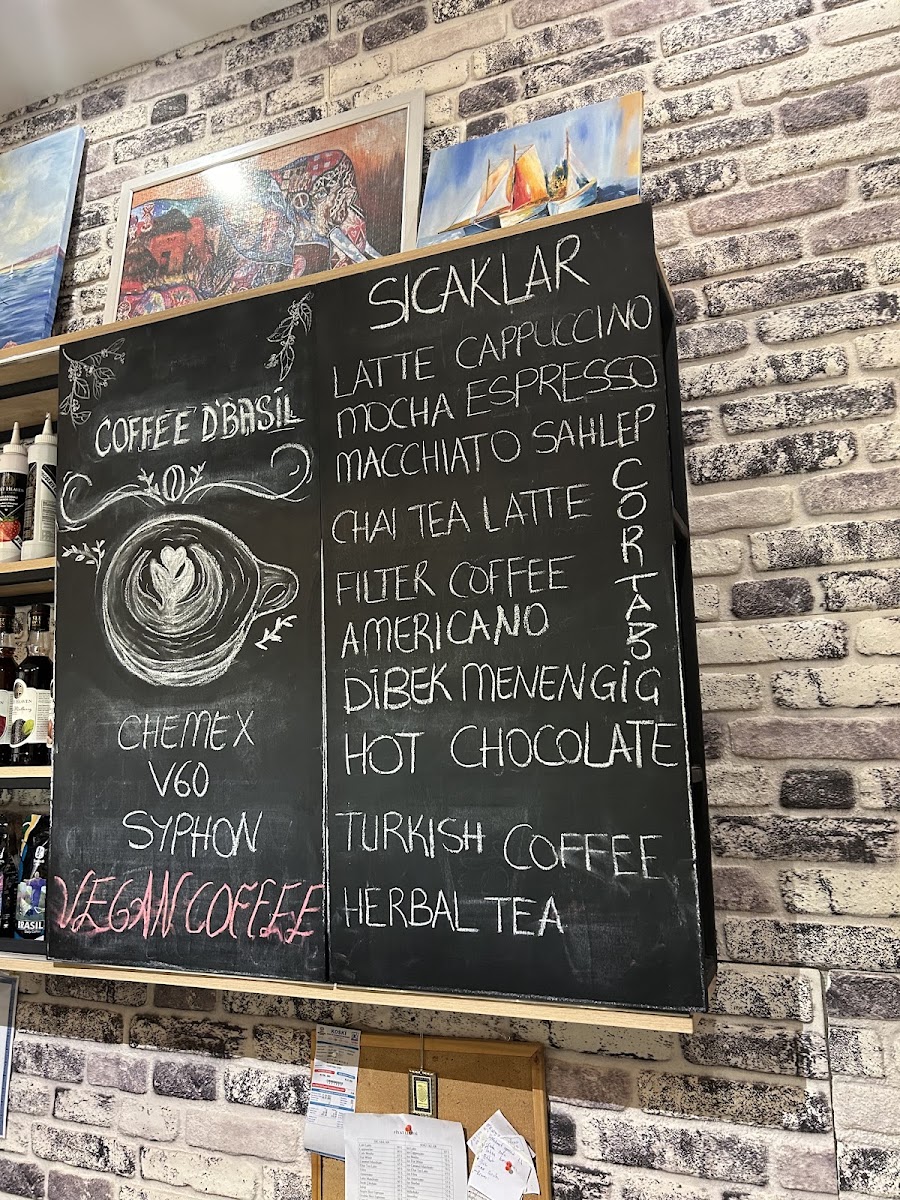 COFFEE D'BASİL
CHEMEX
V60
SYPHON
VEGAN COFFEE
SICAKLAR
LATTE CAPPUCCINO
MOCHA ESPRESSO
MACCHIATO SAHLEP
CHAI TEA LATTE
FILTER COFFEE
AMERICANO
CORTAB
DİBEK MENENGIG
HOT CHOCOLATE
TURKISH COFFEE
HERBAL TEA